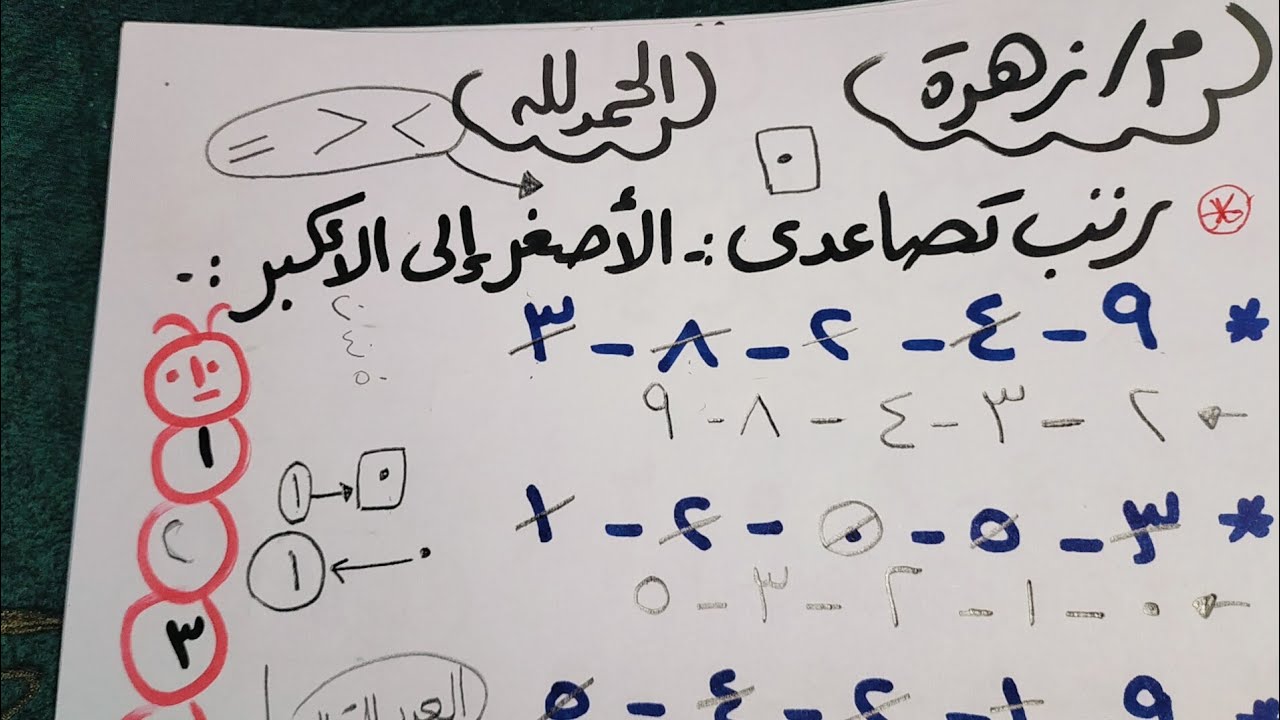 م/زهرة
الحمد لله
> < =
٠
رتب تصاعدى :- الأصغر إلى الأكبر :-
* ٩ - ٤ - ٢ - ٨ - ٣
٢ - ٣ - ٤ - ٨ - ٩
٢٠
٤٠
٥٠
* ٣ - ٥ - ٠ - ٢ - ١
٠ - ١ - ٢ - ٣ - ٥
١
٢
٣
٠
١
٠
١
٩ - ١ - ٢ - ٤ - ٥